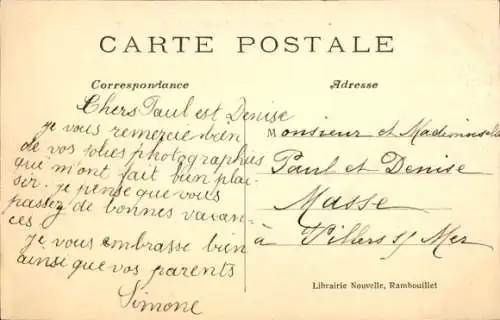 CARTE POSTALE
Correspondance
Adresse
Chers Paul est Denise
je vous remercie bien
de vos jolies photographies
qui m'ont fait bien plai-
sir. je pense que vous
passez de bonnes vacan-
ces.
je vous embrasse bien
ainsi que vos parents
Simone
Monsieur et Mademoiselle
Paul et Denise
Masse
à Villers s/ Mer
Librairie Nouvelle, Rambouillet